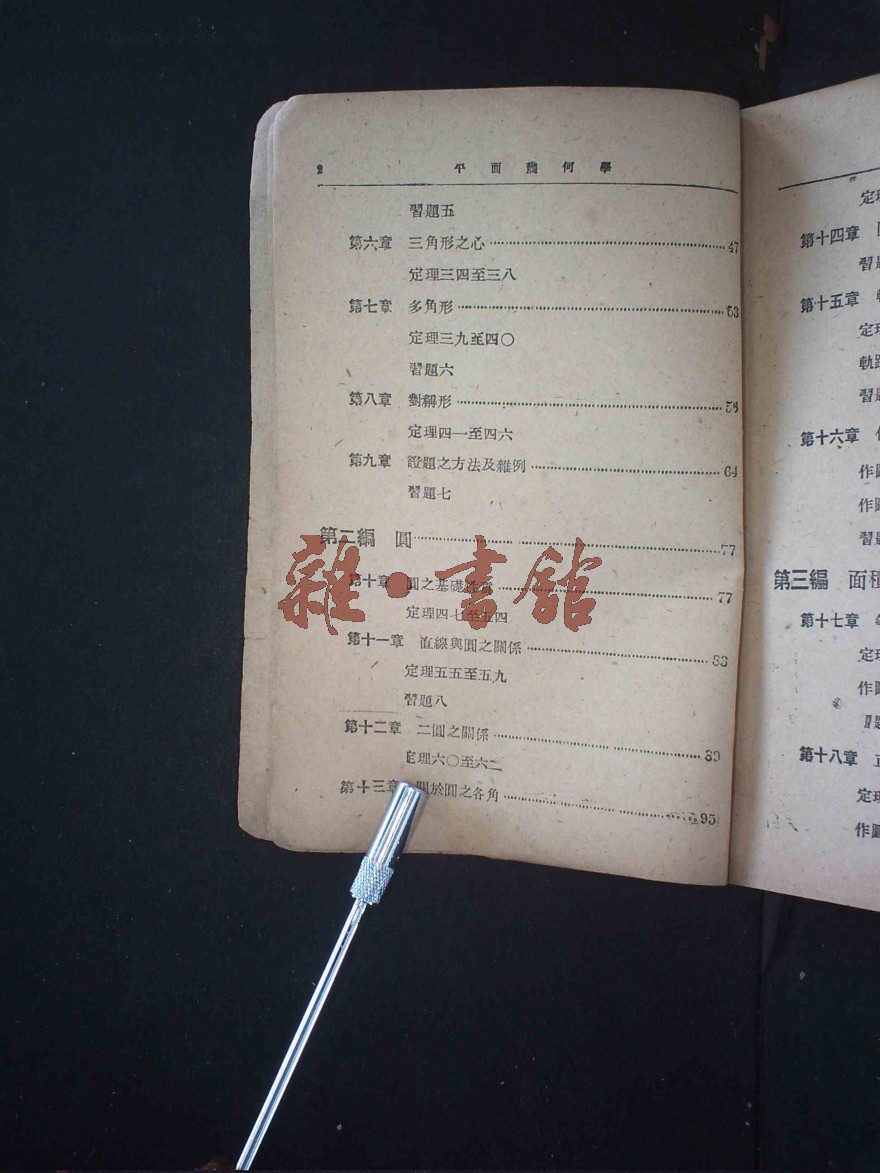 2 平面幾何學
習題五
第六章 三角形之心 47
定理三四至三八
第七章 多角形 53
定理三九至四〇
習題六
第八章 對稱形 58
定理四一至四六
第九章 證題之方法及雜例 64
習題七
第二編 圓 77
第十章 圓之基礎性質 77
定理四七至五四
第十一章 直線與圓之關係 83
定理五五至五九
習題八
第十二章 二圓之關係 89
定理六〇至六二
第十三章 關於圓之各角 95
雜·書館
定
第十四章
習
第十五章
定
軌
習
第十六章
作
作
習
第三編 面積
第十七章
定
作
習
第十八章
定
作